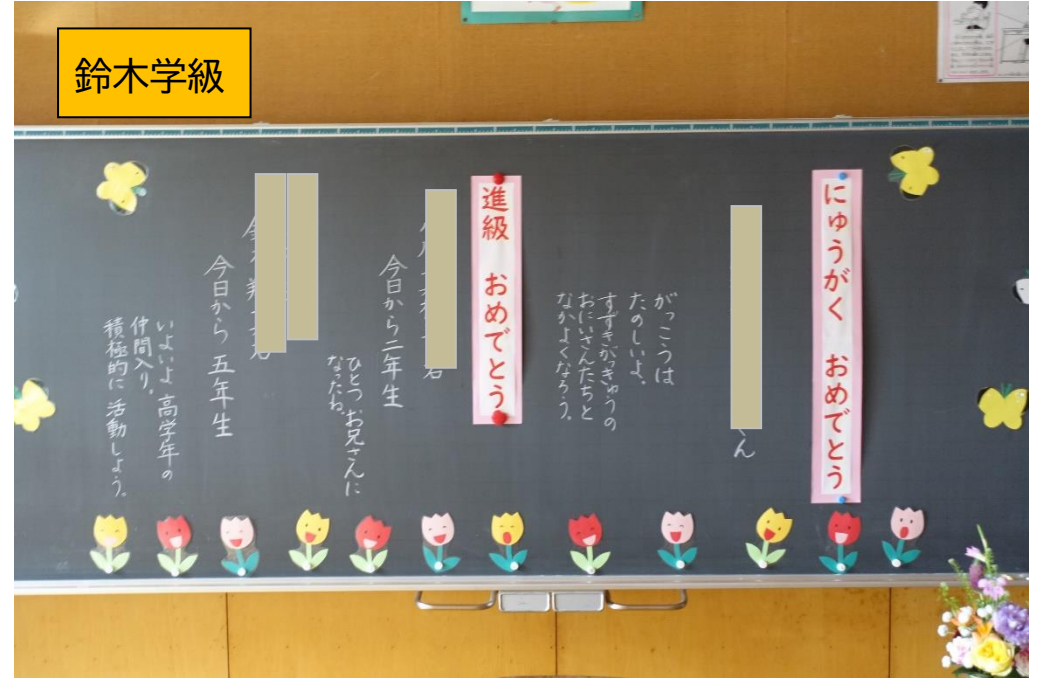 鈴木学級
にゅうがく おめでとう
くん
がっこうは
たのしいよ。
すずきがっきゅうの
おにいさんたちと
なかよくなろう。
進級 おめでとう
君
今日から二年生
ひとつ お兄さんに
なったね。
今日から 五年生
いよいよ 高学年の
仲間入り。
積極的に 活動しよう。